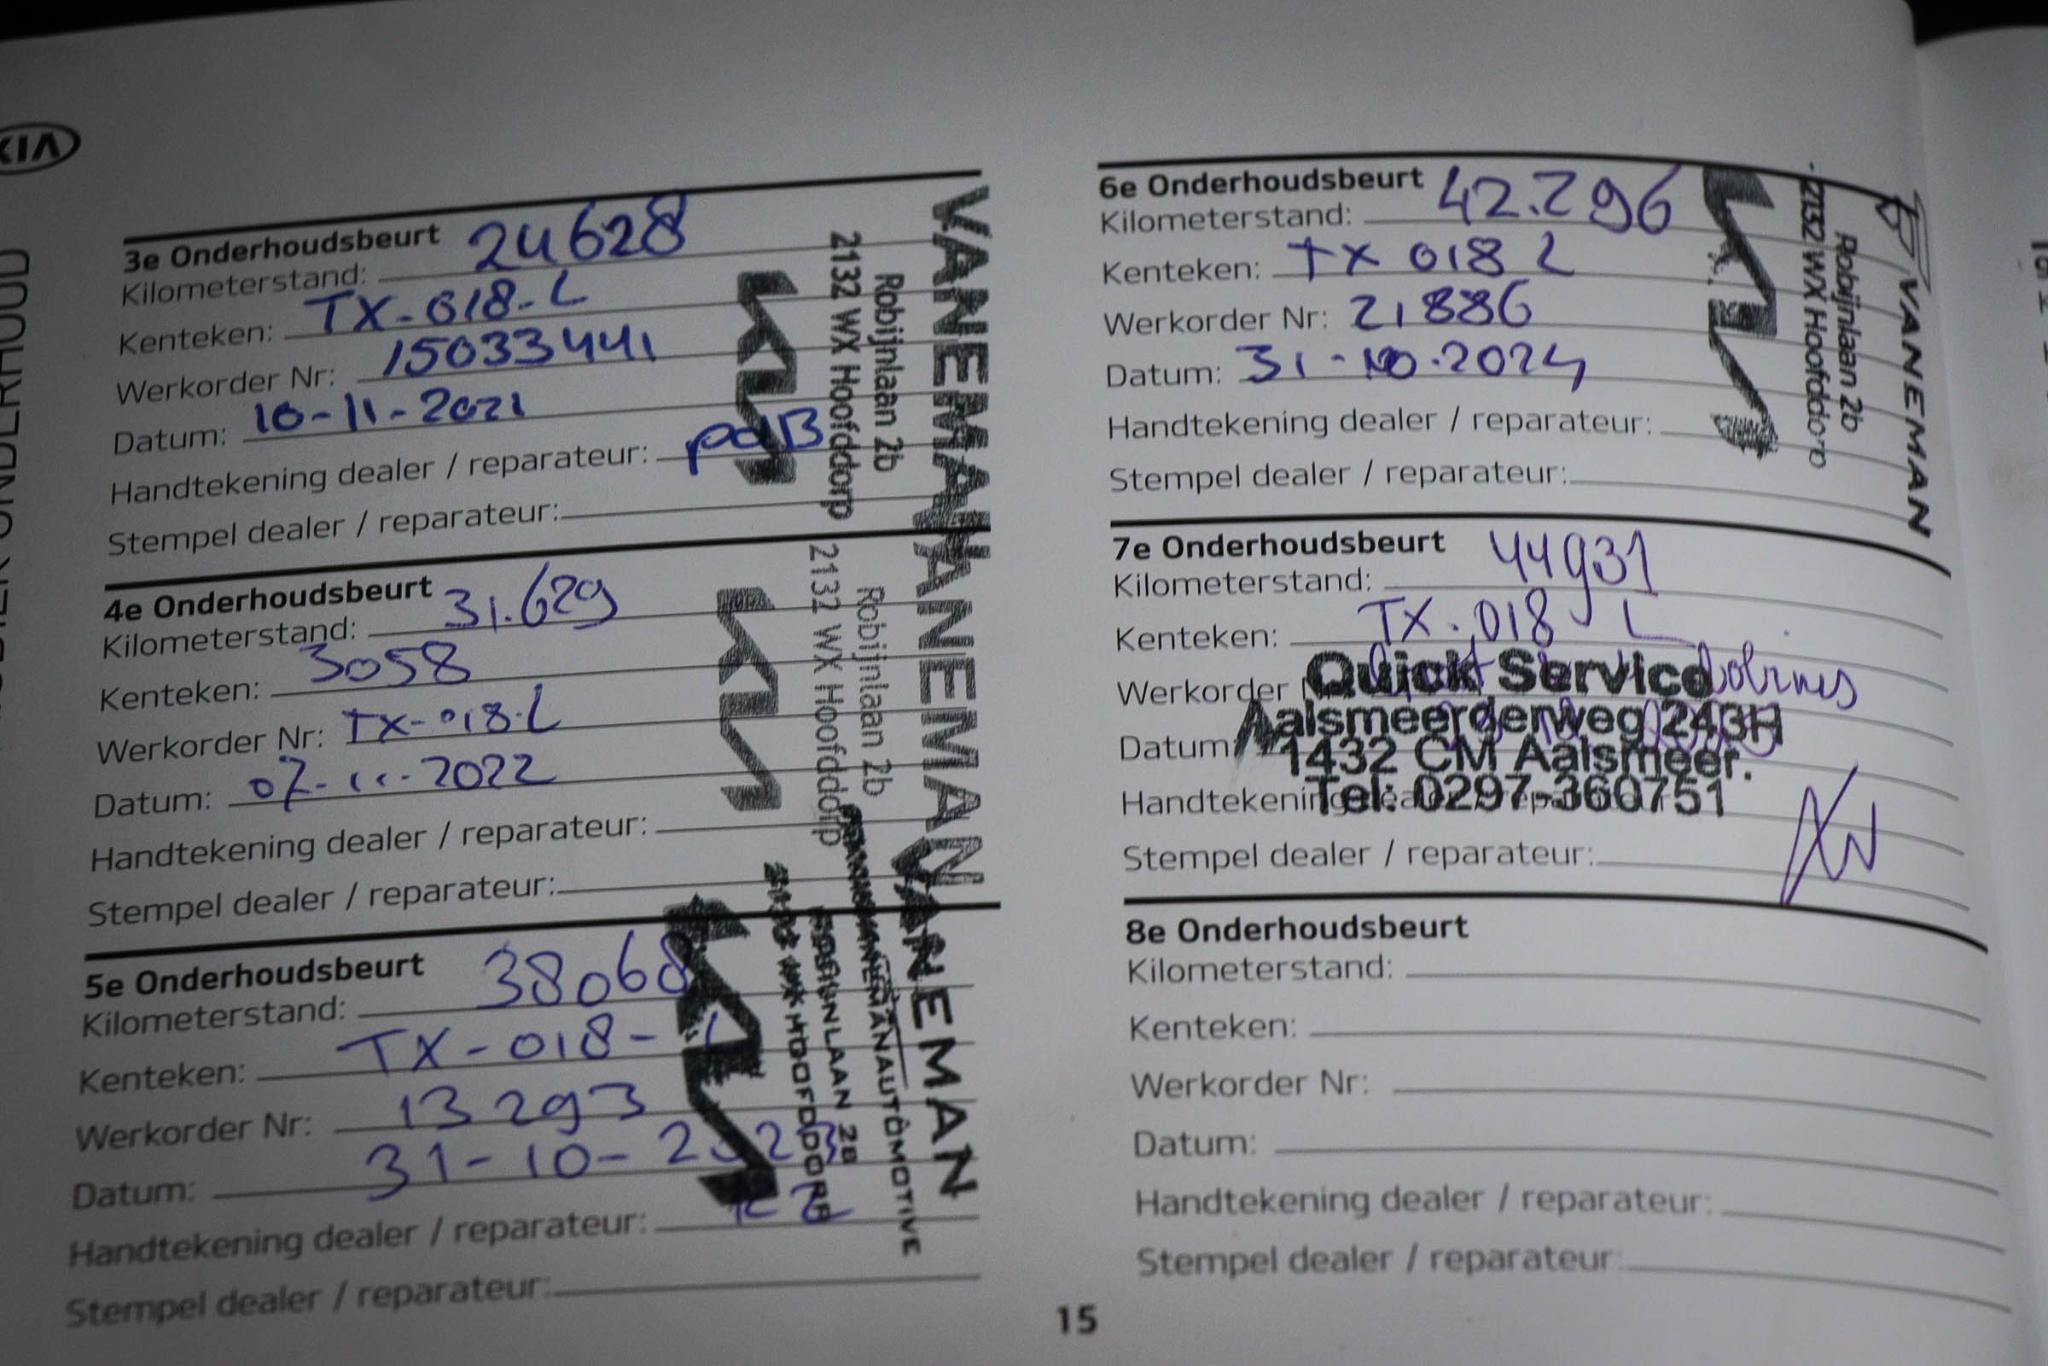 KIA
3e Onderhoudsbeurt
Kilometerstand: 24628
Kenteken: TX-018-L
Werkorder Nr: 15033441
Datum: 10-11-2021
Handtekening dealer / reparateur: pdB
Stempel dealer / reparateur:
VANEMAN
Robijnlaan 2b
2132 WX Hoofddorp
KIA
4e Onderhoudsbeurt
Kilometerstand: 31.629
Kenteken: 3058
Werkorder Nr: TX-018-L
Datum: 07-11-2022
Handtekening dealer / reparateur:
Stempel dealer / reparateur:
VANEMAN
Robijnlaan 2b
2132 WX Hoofddorp
KIA
5e Onderhoudsbeurt
Kilometerstand: 38068
Kenteken: TX-018-L
Werkorder Nr: 13293
Datum: 31-10-2023
Handtekening dealer / reparateur:
Stempel dealer / reparateur:
VANEMAN
VANEMANAUTOMOTIVE
ROBIJNLAAN 2B
2132 WX HOOFDDORP
KIA
6e Onderhoudsbeurt
Kilometerstand: 42.296
Kenteken: TX 018 L
Werkorder Nr: 21886
Datum: 31-10.2024
Handtekening dealer / reparateur:
Stempel dealer / reparateur:
VANEMAN
Robijnlaan 2b
2132 WX Hoofddorp
KIA
7e Onderhoudsbeurt
Kilometerstand: 44931
Kenteken: TX-018-L
Werkorder
Datum
Handtekening
Stempel dealer / reparateur:
Quick Service
Aalsmeerderweg 243H
1432 CM Aalsmeer.
Tel: 0297-360751
8e Onderhoudsbeurt
Kilometerstand:
Kenteken:
Werkorder Nr:
Datum:
Handtekening dealer / reparateur:
Stempel dealer / reparateur:
15